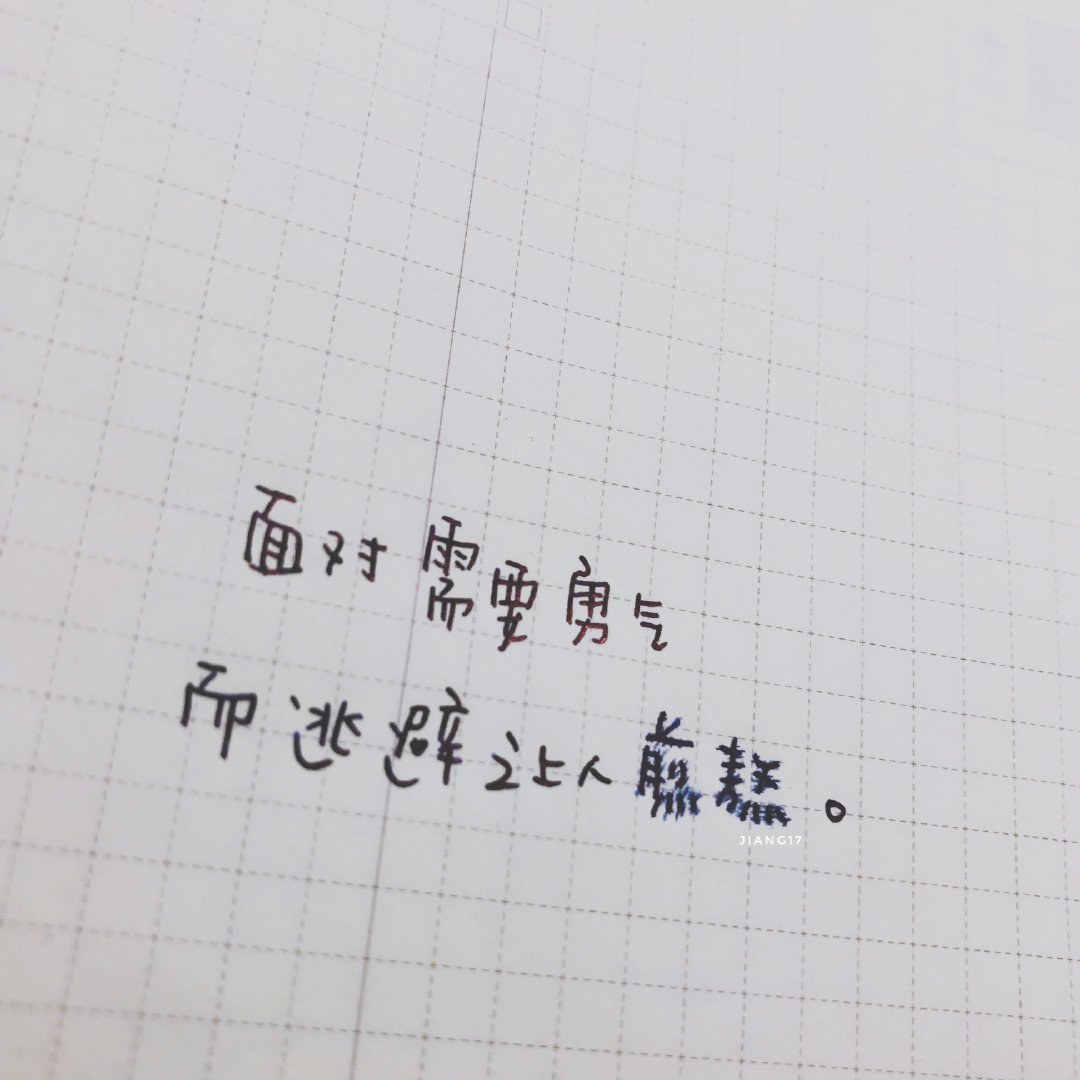 面对需要勇气
而逃避让人煎熬。
JIANG17